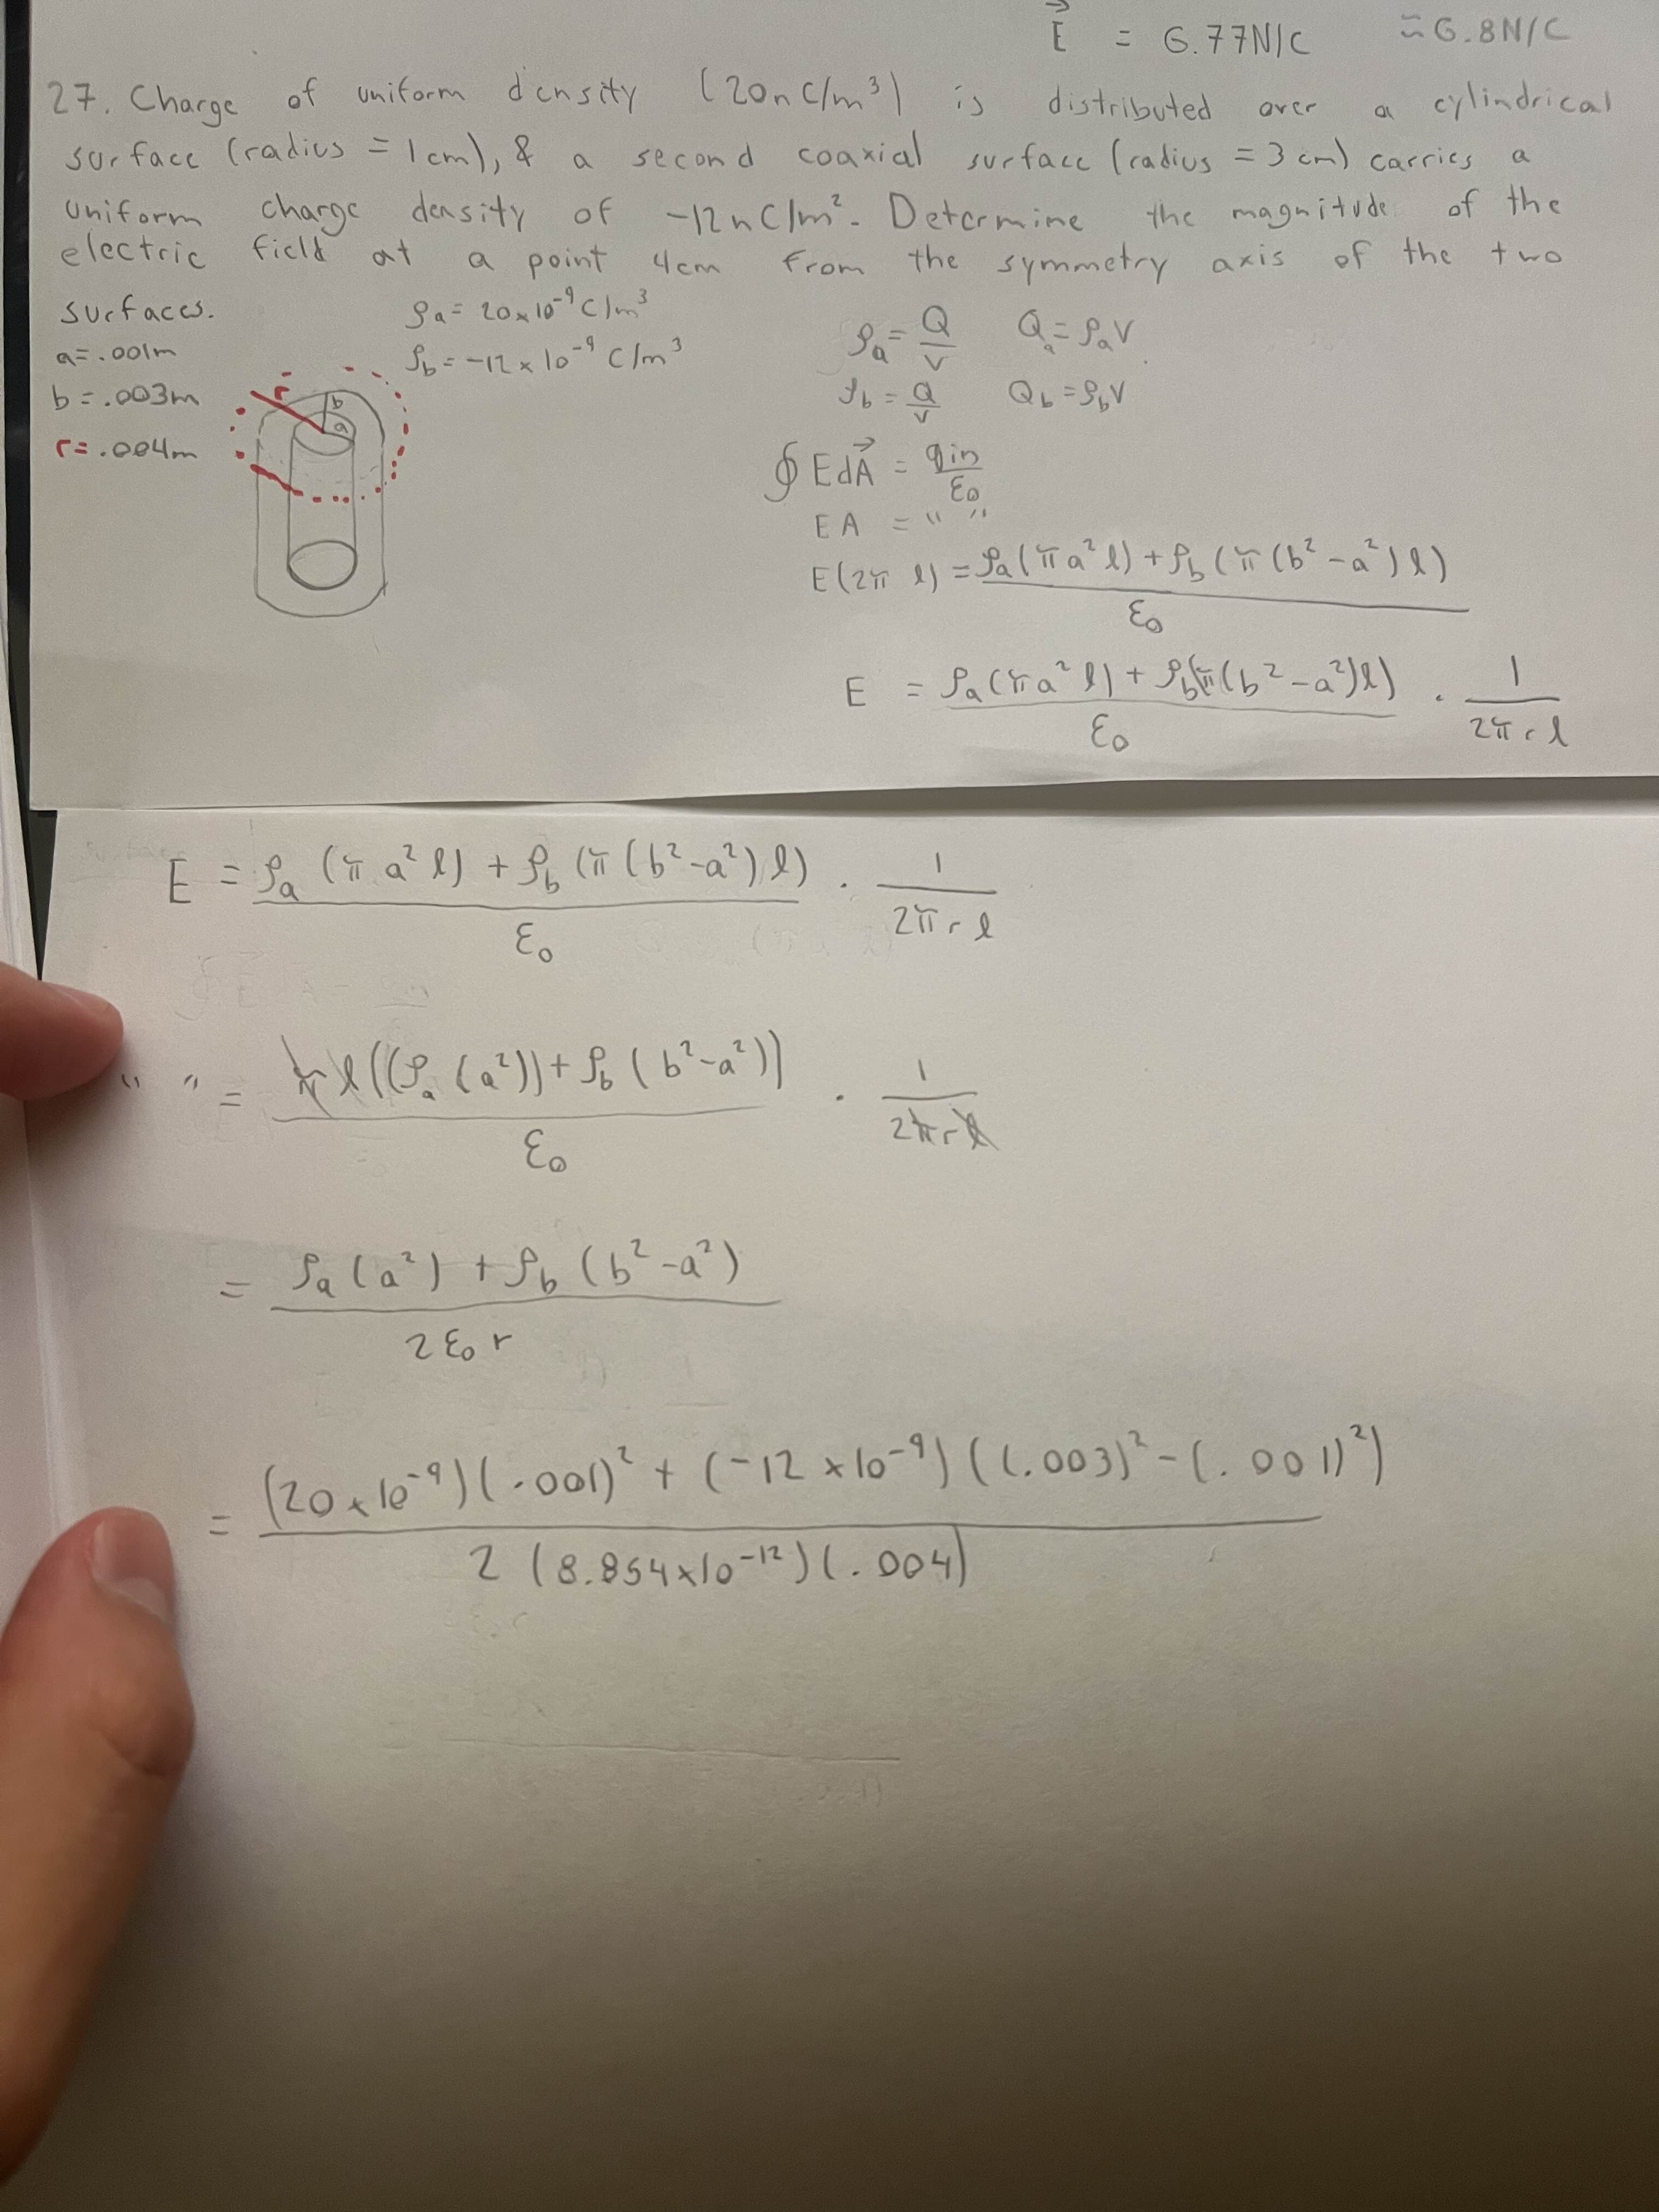 E⃗ = 6.77N/C ≈ 6.8N/C
27. Charge of uniform density (20nC/m³) is distributed over a cylindrical
surface (radius = 1cm), & a second coaxial surface (radius = 3cm) carries a
uniform charge density of -12nC/m². Determine the magnitude of the
electric field at a point 4cm from the symmetry axis of the two
surfaces.
a=.001m
b=.003m
r=.004m
r
b
a
ρa = 20×10⁻⁹C/m³
ρb = -12×10⁻⁹ C/m³
ρa = Q/V Qa = ρaV
ρb = Q/V Qb = ρbV
∮ EdA⃗ = qin/ε0
EA = " "
E(2π l) = ρa(πa²l) + ρb(π(b²-a²)l) / ε0
E = ρa(πa²l) + ρb(π(b²-a²)l) / ε0 · 1/2πrl
E = ρa (π a² l) + ρb (π(b²-a²)l) / ε0 · 1/2πrl
" " = πl((ρa(a²)) + ρb(b²-a²)) / ε0 · 1/2πrl
= ρa(a²) + ρb(b²-a²) / 2ε0r
= (20×10⁻⁹)(.001)² + (-12×10⁻⁹)((.003)²-(.001)²) / 2(8.854×10⁻¹²)(.004)